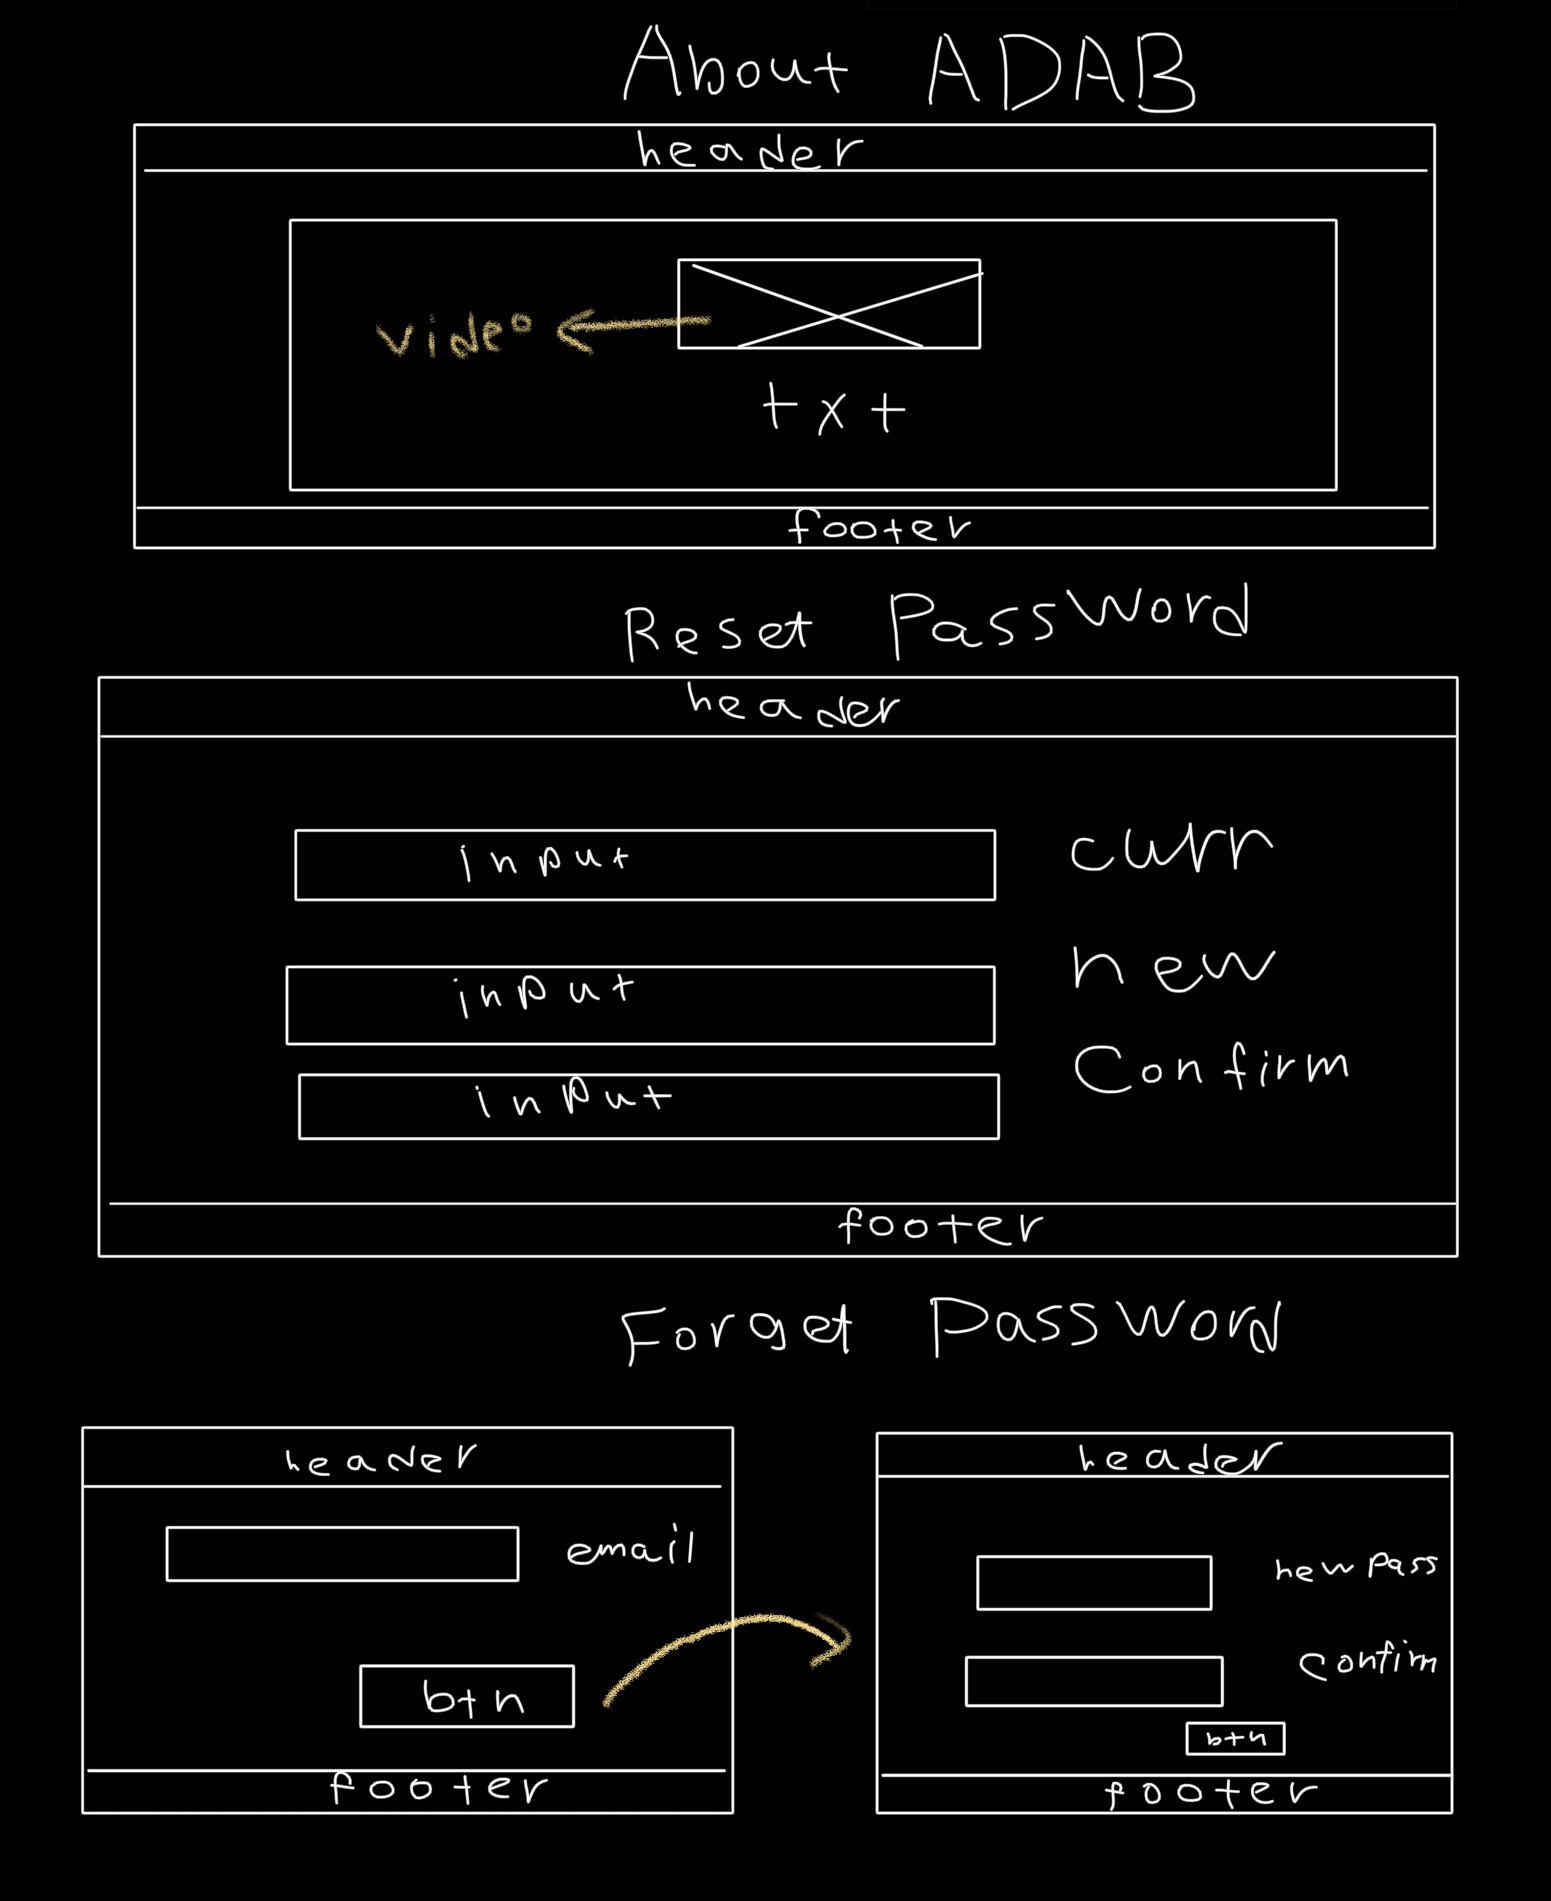 About ADAB
header
video
txt
footer
Reset Password
header
input curr
input new
input Confirm
footer
Forget Password
header
email
btn
footer
header
new pass
confirm
btn
footer